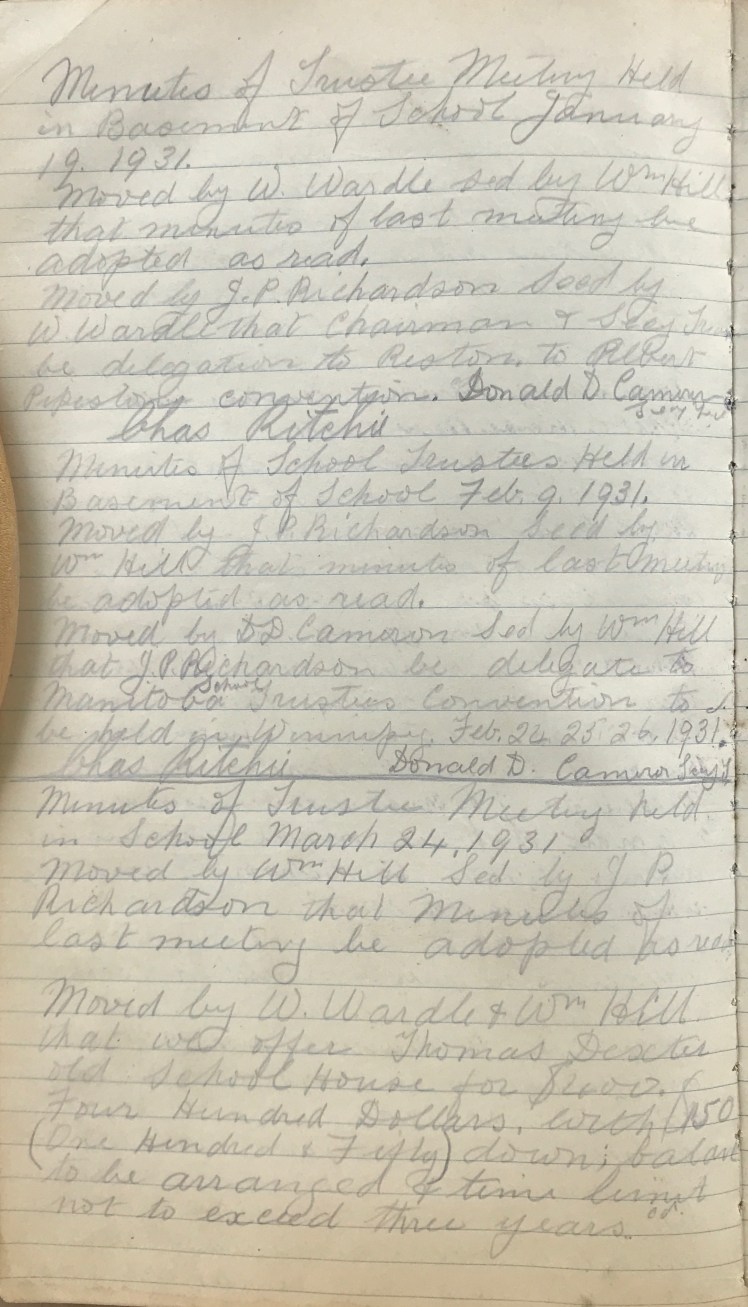 Minutes of Trustee Meeting Held
in Basement of School January
19. 1931.
Moved by W. Wardle sed by Wm Hill
that minutes of last meeting be
adopted as read.
Moved by J. P. Richardson Secd by
W. Wardle that Chairman & Secy Treas
be delegation to Reston. to Albert
Pipestone convention. Donald D. Cameron
Secy Tre
Chas Ritchie
Minutes of School Trustees Held in
Basement of School Feb. 9. 1931.
Moved by J. P. Richardson Secd by
Wm Hill that minutes of last meeting
be adopted as read.
Moved by D. D. Cameron Sed by Wm Hill
that J. P. Richardson be delegate to
Manitoba School Trustees Convention to
be held in Winnipeg. Feb. 24 25 26. 1931.
Chas Ritchie Donald D. Cameron
Minutes of Trustee Meeting held
in School March 24. 1931
Moved by Wm Hill Sed. by J P.
Richardson that Minutes of
last meeting be adopted as read
Moved by W. Wardle & Wm Hill
that we offer Thomas Dexter
old School House for
Four Hundred Dollars. with (150
(One Hundred & Fifty) down; balance
to be arranged & time limit
not to exceed three years. cd.